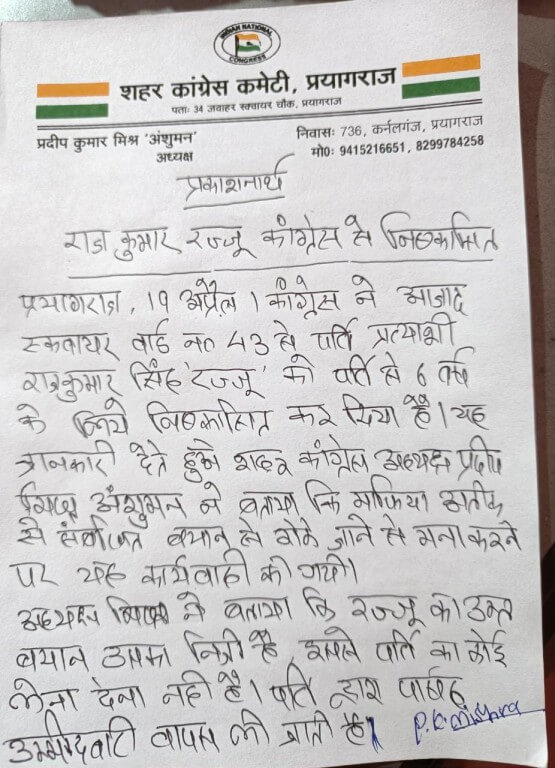 INDIAN NATIONAL
CONGRESS
शहर कांग्रेस कमेटी, प्रयागराज
पताः 34 जवाहर स्क्वायर चौक, प्रयागराज
प्रदीप कुमार मिश्र 'अंशुमन'
अध्यक्ष
निवासः 736, कर्नलगंज, प्रयागराज
मो०: 9415216651, 8299784258
प्रकाशनार्थ
राज कुमार रज्जू कांग्रेस से निष्कासित
प्रयागराज, 19 अप्रैल। कांग्रेस ने आजाद
स्क्वायर वार्ड no 43 से पार्टी प्रत्याशी
राजकुमार सिंह 'रज्जू' को पार्टी से 6 वर्ष
के लिये निष्कासित कर दिया है। यह
जानकारी देते हुये शहर कांग्रेस अध्यक्ष प्रदीप
मिश्र अंशुमन ने बताया कि माफिया अतीक
से संबंधित बयान से रोके जाने से मना करने
पर यह कार्यवाही की गयी।
अध्यक्ष ने बताया कि रज्जू का उक्त
बयान उसका निजी है, इससे पार्टी का कोई
लेना देना नहीं है। पार्टी द्वारा पार्षद
उम्मीदवारी वापस ली जाती है।
P.K. Mishra